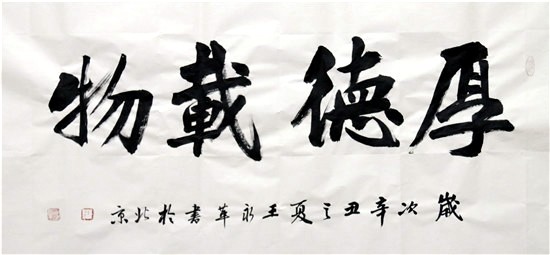 厚德載物
歲次辛丑之夏王永革書於北京